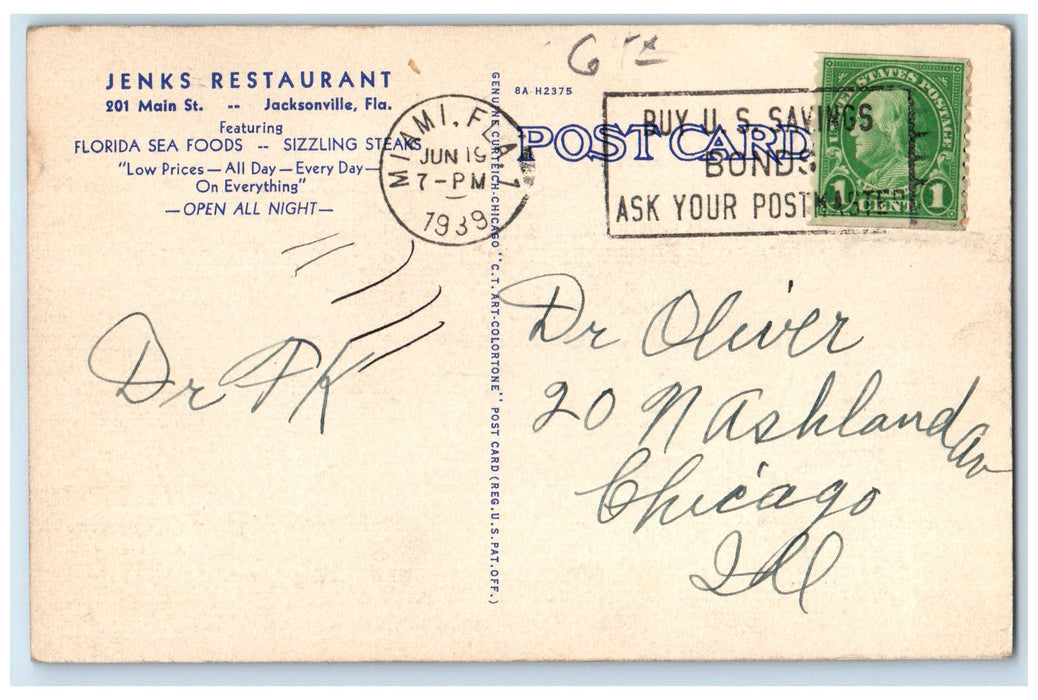 JENKS RESTAURANT
201 Main St. -- Jacksonville, Fla.
Featuring
FLORIDA SEA FOODS -- SIZZLING STEAKS
"Low Prices—All Day—Every Day—
On Everything"
—OPEN ALL NIGHT—
MIAMI, FLA. 1
JUN 19
7-PM
1939
GENUINE CURTEICH-CHICAGO "C.T. ART-COLORTONE" POST CARD (REG. U.S. PAT. OFF.)
8A-H2375
POST CARD
BUY U.S. SAVINGS
BONDS
ASK YOUR POSTMASTER
UNITED STATES POSTAGE
1 CENT 1
Dr PK
Dr Oliver
20 N Ashland Av
Chicago
Ill